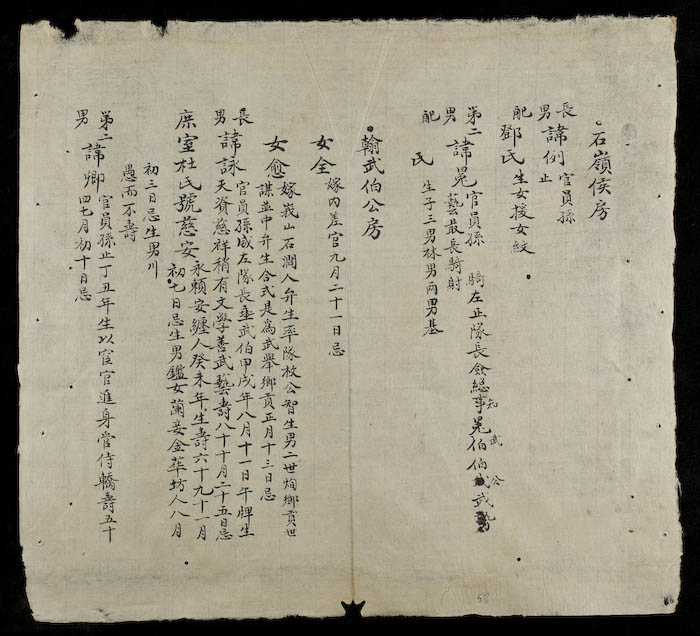 石嶺侯房
長男諱例 官員孫止
配鄧氏 生女援女紋
第二男諱晃 官員孫 騎左止隊長僉總知事晃伯伯武武公
藝最長騎射
配 氏 生子三男林男兩男基
翰武伯公房
女全 嫁內差官九月二十一日忌
女愈 嫁峩山石澗人弁生率隊枚公智生男二世烱鄉貢世
謀並中弁生合式是為武舉鄉貢正月十三日忌
長男諱詠 官員孫威左隊長 武伯甲戌年八月十一日午牌生
天資慈祥稍有文學善武藝壽八十十月二十五日忌
庶室杜氏號慈安 永賴安纏人癸未年生壽六十九十一月
初七日忌生男鑑女蘭妾金華坊人八月
初三日忌生男川
愚而不壽
第二男諱卿 官員孫止丁丑年生以宦官進身常侍轎壽五十
四七月初十日忌
58